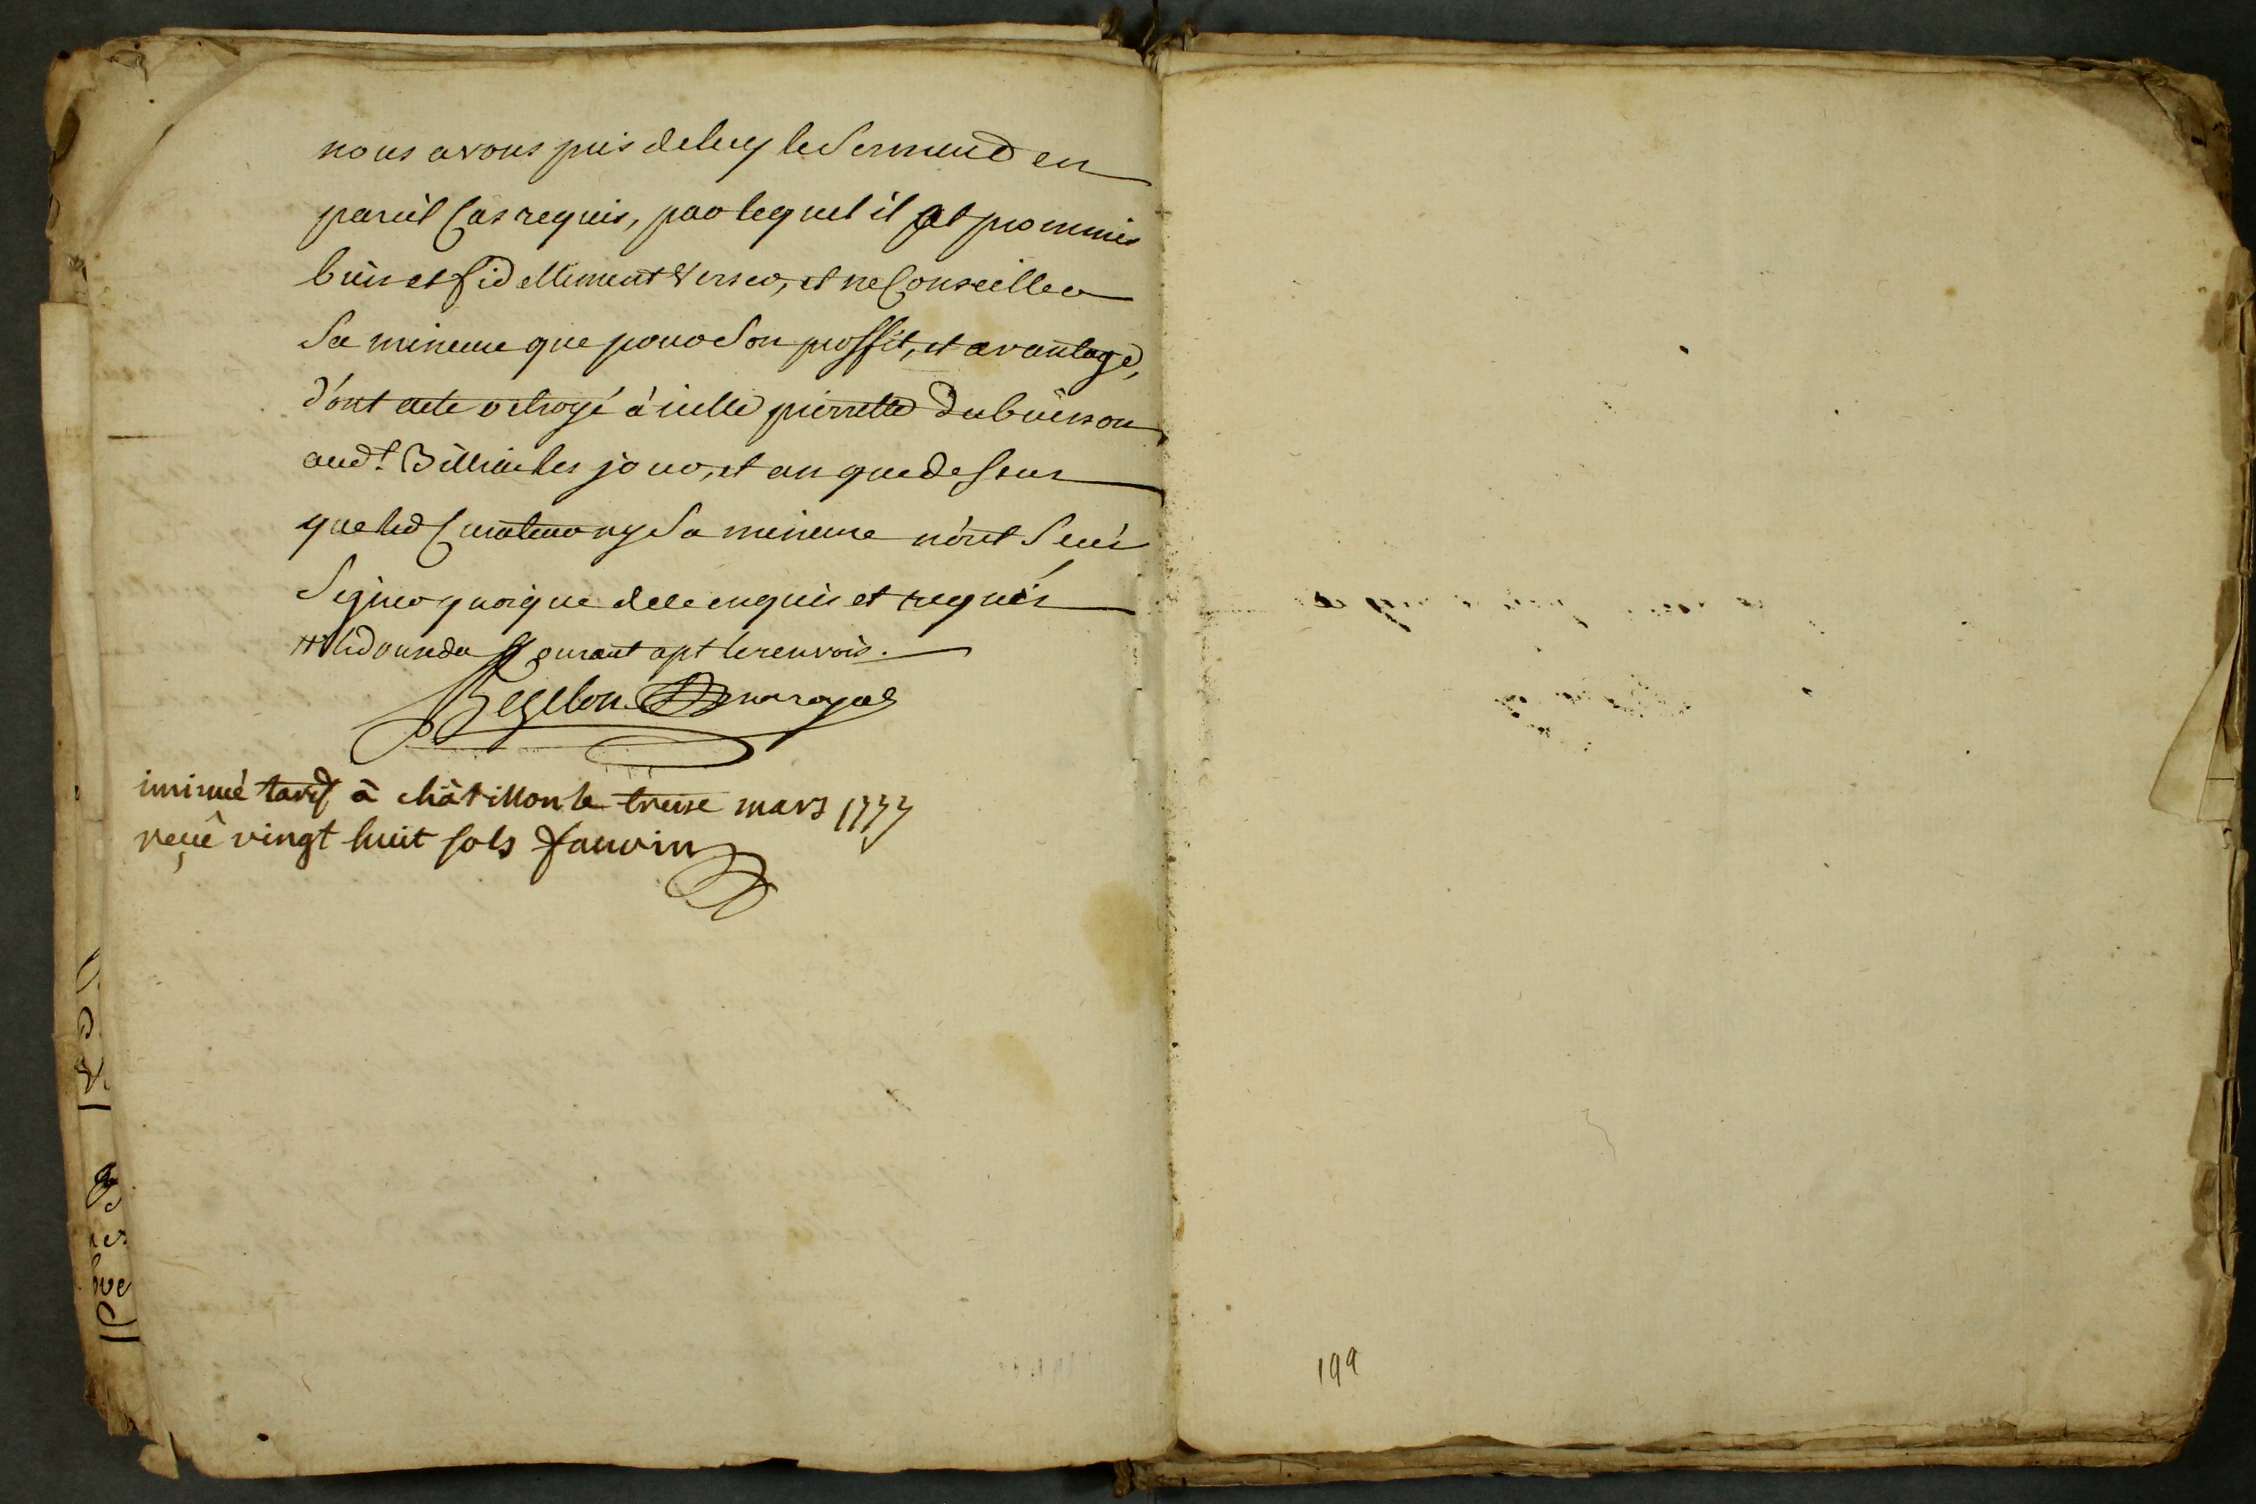 nous avons pris deluy le Serment en
pareil Cas requis, par lequel il at prommis
bien et fidellement verser, et ne Conseiller
Sa mineure que pour Son proffit, et avantage,
d'ont acte octroyé à icelle pierrette Dubuisson
aud.t Billiat les jour, et an que dessus
que led Curateur ny Sa mineure n'ont Sceu
Signer quoique de ce enquis et requis
led jour courant apt le renvois.
Begelon no.re royal
insinué tarif à châtillon le treise mars 1777
reçû vingt huit sols fauvin
199